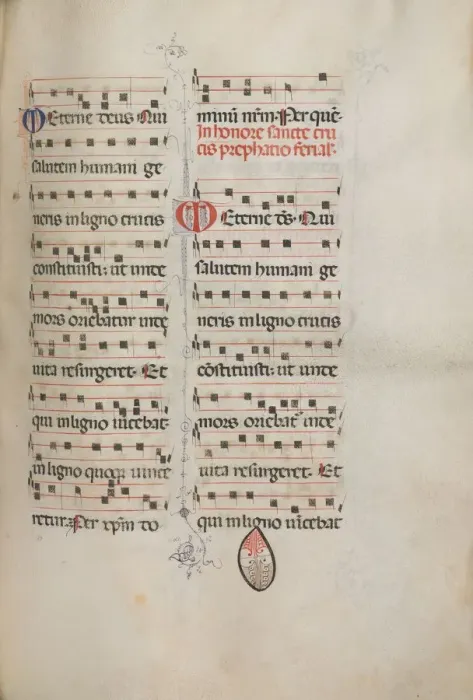 Eterne deus Qui
salutem humani ge
neris in ligno crucis
constituisti: ut unde
mors oriebatur inde
uita resurgeret. Et
qui in ligno uincebat
in ligno quoqȝ uince
retur. Per xp̄m do
minū nr̄m. Per quē.
In honore sancte cru
cis prephatio ferial.
Eterne ds̄. Qui
salutem humani ge
neris in ligno crucis
cōstituisti: ut unde
mors oriebat᷑ inde
uita resurgeret. Et
qui in ligno uīcebat